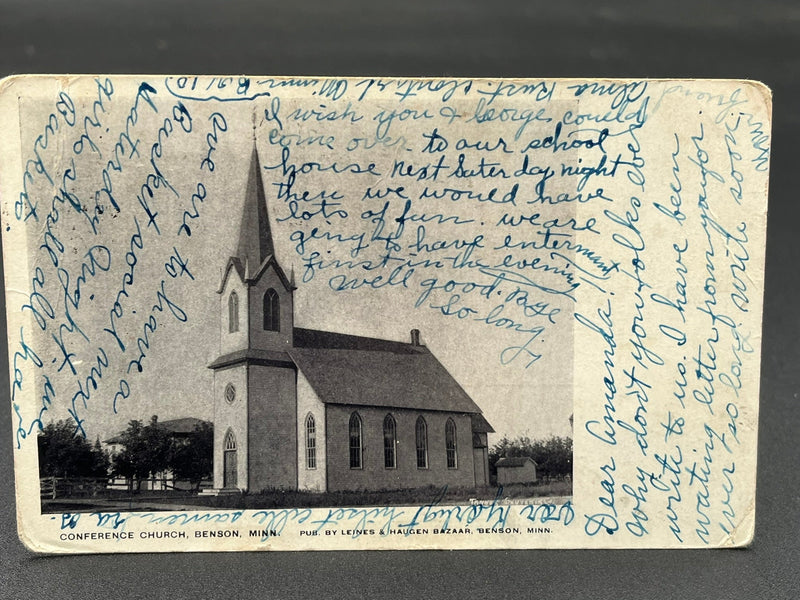 Dear Amanda!
Why don't you folks ever
write to us. I have been
wating letter from you for
ever so long. Write soon.
We are to have a
Basket social next
Saterday Night. We
girls shall all have
Baskits.
I wish you & George could
come over to our school
house next Saterday night
then we would have
lots of fun. we are
going to have enterment
first in the evening
Well good. Bye
So long
Alma
CONFERENCE CHURCH, BENSON, MINN.
PUB. BY LEINES & HAUGEN BAZAAR, BENSON, MINN.